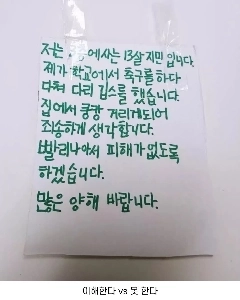 저는 에 사는 13살 지민 입니다.
제가 학교에서 축구를 하다
다쳐 다리 깁스를 했습니다.
집에서 쿵쾅 거리게되어
죄송하게 생각합니다.
빨리나아서 피해가없도록
하겠습니다.
많은 양해 바랍니다.
이해한다 vs 못 한다